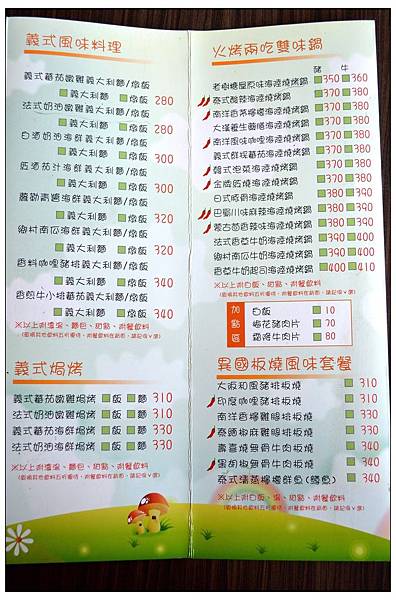 義式風味料理
義式蕃茄嫩雞義大利麵/燉飯
義大利麵 燉飯 280
法式奶油嫩雞義大利麵/燉飯
義大利麵 燉飯 280
白酒奶油海鮮義大利麵/燉飯
義大利麵 燉飯 300
匠酒茄汁海鮮義大利麵/燉飯
義大利麵 燉飯 300
羅勒青醬海鮮義大利麵/燉飯
義大利麵 燉飯 320
鄉村南瓜海鮮義大利麵/燉飯
義大利麵 燉飯 320
香料咖哩豬排義大利麵/燉飯
義大利麵 燉飯 340
香煎牛小排蕃茄義大利麵/燉飯
義大利麵 燉飯 340
※以上附濃湯、麵包、甜點、附餐飲料
義式焗烤
義式蕃茄嫩雞焗烤 飯 麵 310
法式奶油嫩雞焗烤 飯 麵 310
義式蕃茄海鮮焗烤 飯 麵 330
法式奶油海鮮焗烤 飯 麵 330
※以上附濃湯、麵包、甜點、附餐飲料
火烤兩吃雙味鍋
豬 牛
老樹糖屋原味海陸燒烤鍋 350 360
泰式酸辣海陸燒烤鍋 370 380
南洋香茅檸檬海陸燒烤鍋 370 380
大漢養生麵海陸燒烤鍋 370 380
南洋風味咖哩海陸燒烤鍋 370 380
義式鮮蔬蕃茄海陸燒烤鍋 370 380
韓式泡菜海陸燒烤鍋 370 380
金牌匠燒海陸燒烤鍋 370 380
日式豚骨海陸燒烤鍋 370 380
巴蜀川味麻辣海陸燒烤鍋 380 390
蒙古茴香辣味海陸燒烤鍋 380 390
法式香草牛奶海陸燒烤鍋 390 400
鄉村南瓜牛奶海陸燒烤鍋 390 400
香草牛奶起司海陸燒烤鍋 400 410
※以上附白飯、甜點、附餐飲料
加點區
白飯 10
梅花豬肉片 70
霜降牛肉片 80
異國板燒風味套餐
大阪和風豬排板燒 310
印度咖哩豬排板燒 310
南洋香檸雞腿排板燒 330
泰國椒麻雞腿排板燒 330
壽喜燒無骨牛肉板燒 340
黑胡椒無骨牛肉板燒 340
泰式清蒸檸檬鮮魚(鱸魚) 340
※以上附白飯、湯、甜點、附餐飲料